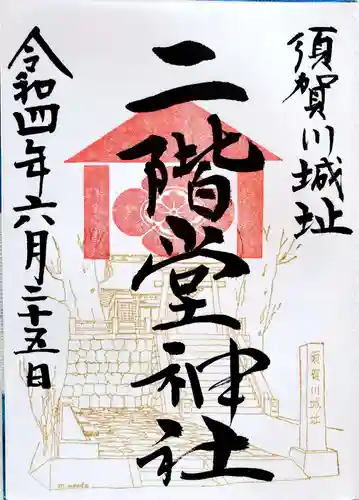 須賀川城址
二階堂神社
令和四年六月二十五日
須賀川城址